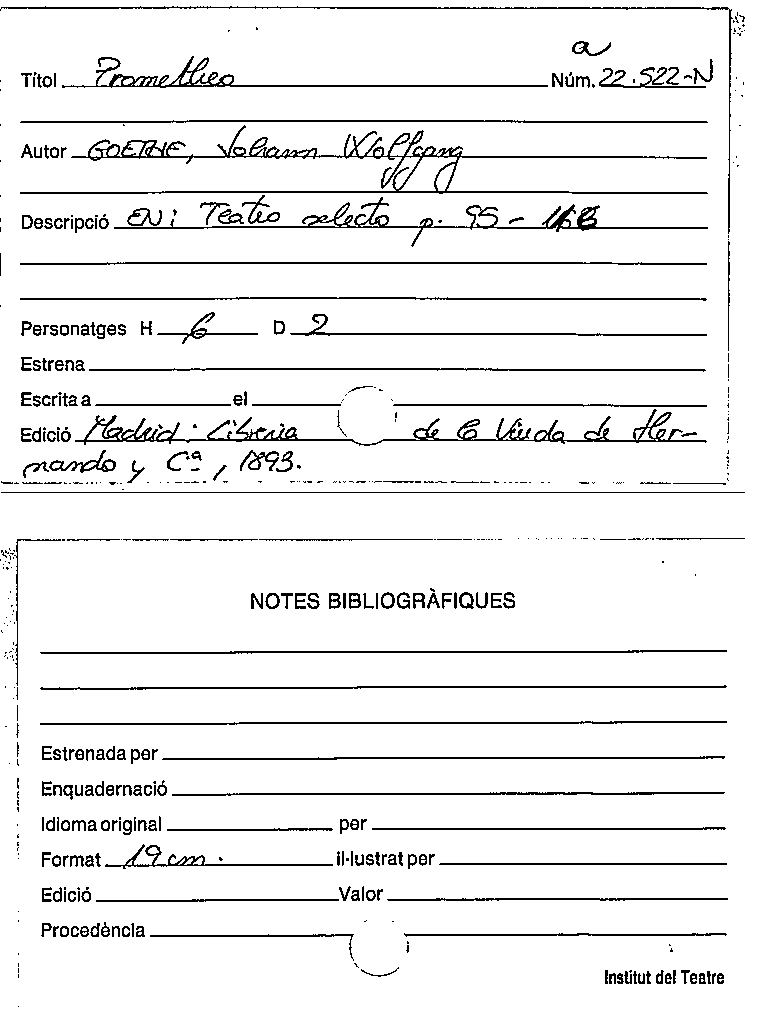 a
Títol Prometheo Núm. 22.522-N
Autor GOETHE, Johann Wolfgang
Descripció EN: Teatro selecto p. 95 -
Personatges H 6 D 2
Estrena
Escrita a el
Edició Madrid: Libreria de la Viuda de Her-
nando y Cª, 1893.
NOTES BIBLIOGRÀFIQUES
Estrenada per
Enquadernació
Idioma original per
Format 19 cm. il·lustrat per
Edició Valor
Procedència
Institut del Teatre